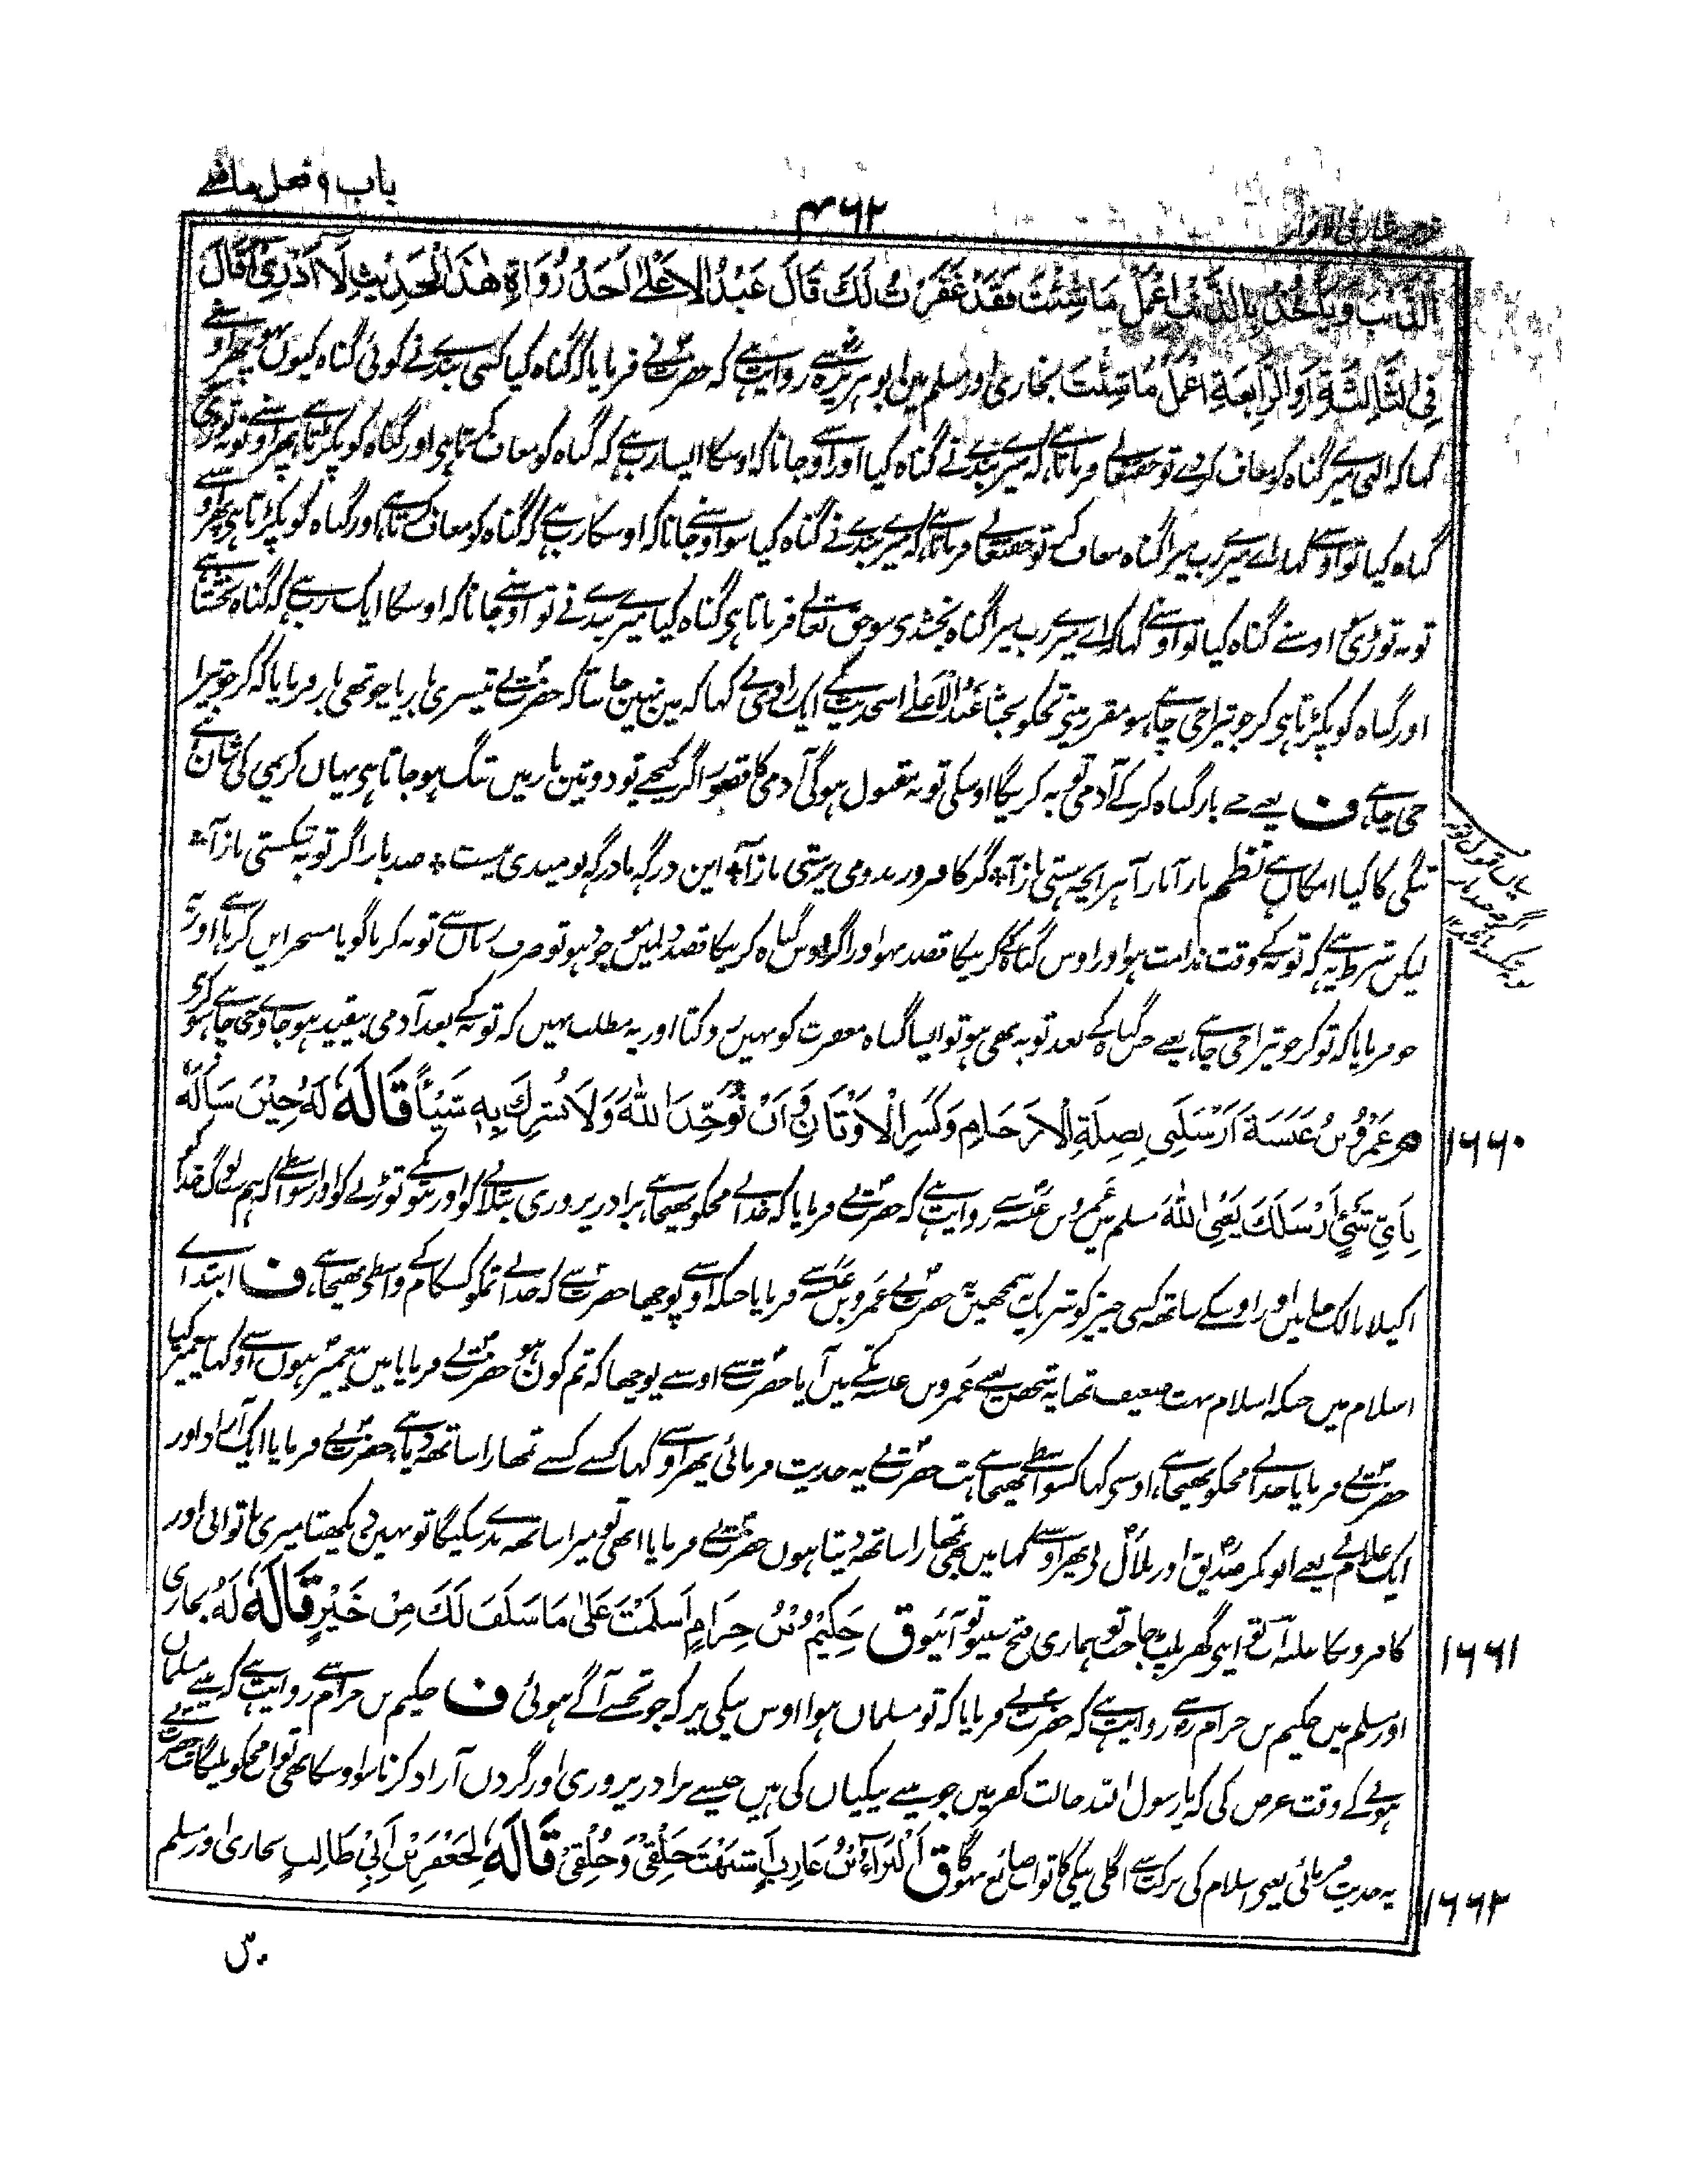 باب ۹ فصل ماضی
۴۶۲
الذَّنْبَ وَيَأْخُذُ بِالذَّنْبِ اِعْمَلْ مَا شِئْتَ فَقَدْ غَفَرْتُ لَكَ قَالَ عَبْدُ الْاَعْلٰى اَحَدُ رُوَاةِ هٰذَا الْحَدِيْثِ لَا اَدْرِيْ اَقَالَ
فِي الثَّالِثَةِ اَوِ الرَّابِعَةِ اِعْمَلْ مَا شِئْتَ بخاری اور مسلم مین ابو ہریرہؓ سے روایت ہے کہ حضرتؐ نے فرمایا کہ گناہ کیا کسی بندے نے کوئی گناہ کیوں ہو پھر اوسنے
کہا کہ الہی میرے گناہ کو معاف کر دے تو حقتعالے فرماتا ہے کہ میرے بندے نے گناہ کیا اور اوسنے جانا کہ اوسکا ایسا رب ہے کہ گناہ کو معاف کرتا ہی اور گناہ کو پکڑتا ہے پھر اوسنے توبہ توڑی
گناہ کیا تو اوسنے کہا اے میرے رب میرا گناہ معاف کر تو حقتعالے فرماتا ہے کہ میرے بندے نے گناہ کیا سو اوسنے جانا کہ اوسکا رب ہے کہ گناہ کو معاف کرتا ہے اور گناہ کو پکڑتا ہی پھر اوسنے
توبہ توڑی اوسنے گناہ کیا تو اوسنے کہا کہ اے میرے رب میرا گناہ بخشدی سو حق تعالے فرماتا ہی گناہ کیا میرے بندے نے تو اوسنے جانا کہ اوسکا ایک رب ہے کہ گناہ بخشتا ہے
اور گناہ کو پکڑتا ہی کر جو تیرا جی چاہے سو مقرر مینے تجکو بخشا عبدالاعلے اسحدیث کے ایک راوی نے کہا کہ مین نہین جانتا کہ حضرتؐ نے تیسری بار یا چوتھی بار فرمایا کہ کر جو تیرا
جی چاہے ف یعنے جے بار گناہ کر کے آدمی توبہ کریگا اوسکی توبہ مقبول ہوگی آدمی کا قصور اگر کیجے تو دو تین بار میں تنگ ہو جاتا ہی یہاں کریمی کی شان سے
تنگی کا کیا امکان ہے نظم باز آ باز آ ہر آنچہ ہستی باز آ * گر کافر و رند و می پرستی باز آ * این درگہ ما درگہ نومیدی نیست * صد بار اگر توبہ شکستی باز آ *
لیکن شرط یہ ہے کہ توبہ کے وقت ندامت ہو اور اوس گناہ کے کرنیکا قصد نہو اور اگر اوس گناہ کرنیکا قصد دلمیں موجود ہو تو صرف زبان سے توبہ کرنا گویا مسخراپن کرنا ہے اور یہ
جو فرمایا کہ تو کر جو تیرا جی چاہے یعنے جس گناہ کے بعد توبہ بھی ہو تو ایسا گناہ مغفرت کو نہیں روکتا اور یہ مطلب نہیں کہ توبہ کے بعد آدمی بیقید ہو جاوے جو جی چاہے سو کرے
۱۶۶۰ م عَمْرُو بْنُ عَبَسَةَ اَرْسَلَنِيْ بِصِلَةِ الْاَرْحَامِ وَكَسْرِ الْاَوْثَانِ وَاَنْ يُوَحَّدَ اللّٰهُ وَلَا يُشْرَكَ بِهٖ شَيْئًا قَالَهٗ لَهٗ حِيْنَ سَاَلَهٗ
بِاَيِّ شَيْءٍ اَرْسَلَكَ يَعْنِي اللّٰهَ مسلم میں عمرو بن عبسہؓ سے روایت ہے کہ حضرتؐ نے فرمایا کہ خدا نے مجکو بھیجا ہے برادر پروری بتلانے کو اور بتونکے توڑنے کو اور اسواسطے کہ ہم لوگ خدا کو
اکیلا مالک جانیں اور اوسکے ساتھ کسی چیز کو شریک نہ سمجھیں یہ حضرتؐ نے عمرو بن عبسہؓ سے فرمایا جبکہ اوسنے پوچھا حضرتؐ سے کہ خدا نے تمکو کسکام کے واسطے بھیجا ہے ف ابتداے
اسلام میں جبکہ اسلام بہت ضعیف تھا یہ شخص یعنے عمرو بن عبسہ مکے میں آیا حضرتؐ سے اوسنے پوچھا کہ تم کون ہو حضرتؐ نے فرمایا میں پیغمبر ہوں اوسنے کہا پیغمبر کیا
حضرتؐ نے فرمایا خدا نے مجکو بھیجا ہے اوسنے کہا کسواسطے بھیجا ہے تب حضرتؐ نے یہ حدیث فرمائی پھر اوسنے کہا کسنے کسنے تمھارا ساتھ دیا ہے حضرتؐ نے فرمایا ایک آزاد اور
ایک غلام نے یعنے ابو بکر صدیقؓ اور بلالؓ نے پھر اوسنے کہا میں بھی تمھارا ساتھ دیتا ہوں حضرتؐ نے فرمایا ابھی تو میرا ساتھ ندے سکیگا تو نہیں دیکھتا میری ناتوانی اور
کافرونکا غلبہ اب تو اپنے گھر پلٹ جا جب تو ہماری فتح سنیو تو آئیو ق حَكِيْمُ بْنُ حِزَامٍ اَسْلَمْتَ عَلٰى مَا سَلَفَ لَكَ مِنْ خَيْرٍ قَالَهٗ لَهٗ بخاری
۱۶۶۱
اور مسلم میں حکیم بن حزامؓ سے روایت ہے کہ حضرتؐ نے فرمایا کہ تو مسلمان ہوا اوس نیکی پر کہ جو تجھسے آگے ہوئی ف حکیم بن حزام سے روایت ہے کہ مینے مسلمان
ہونے کے وقت عرض کی کہ یا رسول اللہ حالت کفر میں جو مینے نیکیاں کی ہیں جیسے برادر پروری اور گردن آزاد کرنا سو اوسکا بھی ثواب مجکو ملیگا تب حضرتؐ نے
یہ حدیث فرمائی یعنی اسلام کی برکت سے اگلی نیکی کا ثواب ضائع نہوگا ق اَلْبَرَاءُ بْنُ عَازِبٍ اَشْبَهْتَ خَلْقِيْ وَخُلُقِيْ قَالَهٗ لِجَعْفَرِ بْنِ اَبِيْ طَالِبٍ بخاری اور مسلم
۱۶۶۲
میں